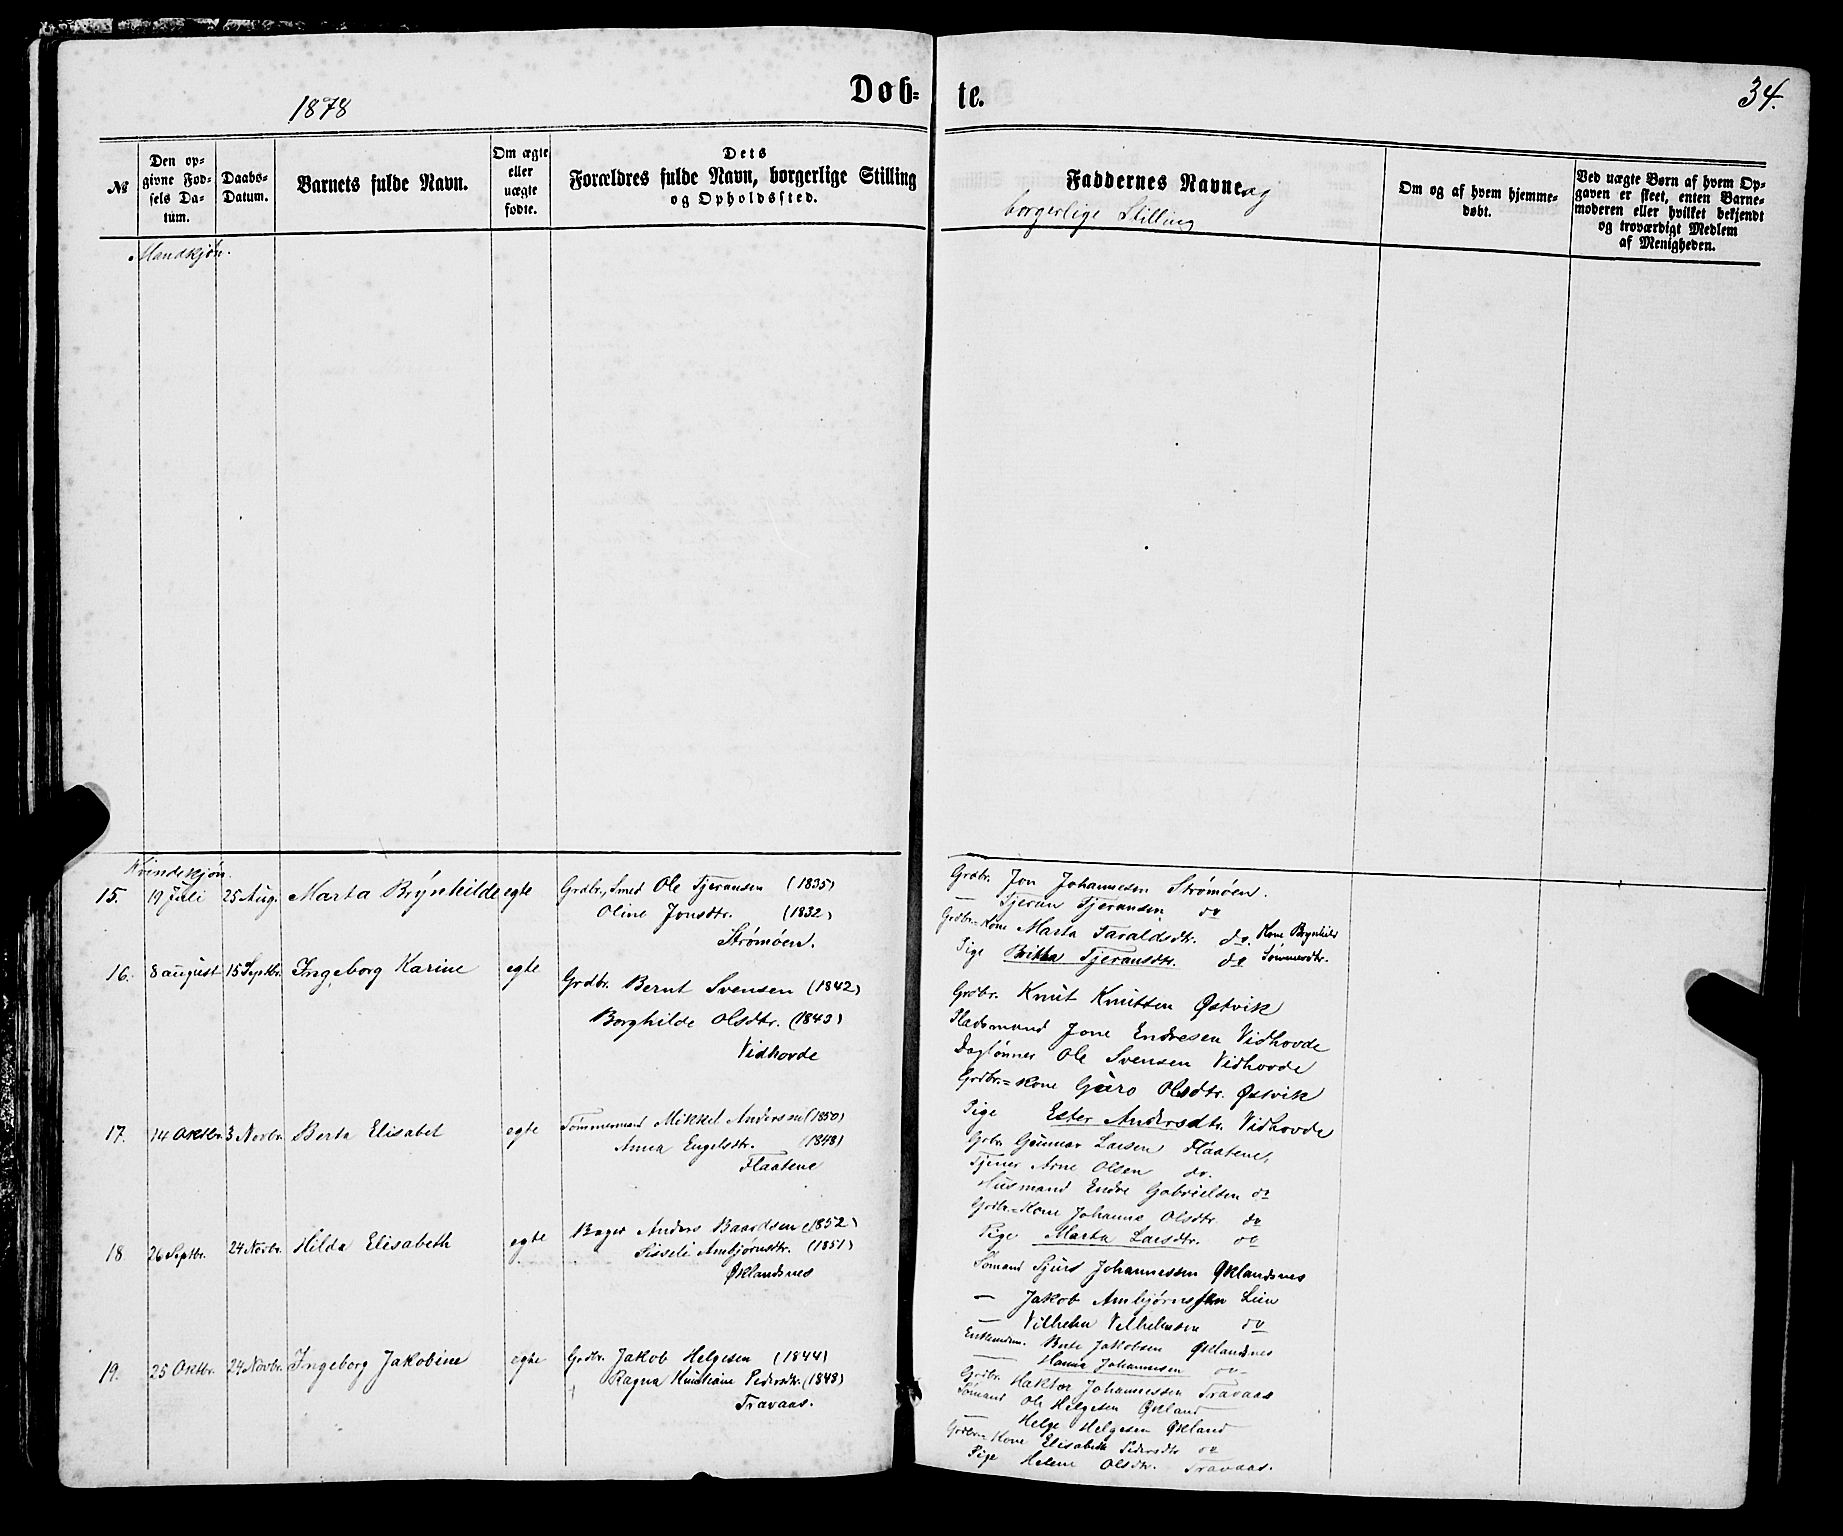 1878
Døb-
te.
34.
№
Den op-
givne Fød-
sels Da-
tum.
Daabs-
Datum.
Barnets fulde Navn.
Om ægte
eller
uægte
fødte.
Dets
Forældres fulde Navn, borgerlige Stilling
og Opholdssted.
Faddernes Navne og
borgerlige Stilling
Om og af hvem hjemme-
døbt.
Ved uægte Børn af hvem Op-
gaven er skeet, enten Barne-
moderen eller hvilket bekjendt
og troværdigt Medlem
af Menigheden.
Mandkjøn.
Kvindekjøn.
15. 19 Juli 25 Aug. Marta Brynhilde egte Grdbr., Smed Ole Tjeransen (1835)
Oline Jonsdtr. (1832)
Strømøen.
Grdbr. Jon Johannesen Strømøen.
— Tjeran Tjeransen do
Grdbr.-Kone Marta Taraldsdtr. do. Kone Brynhild
Pige Brithe Tjeransdtr. do
16. 8 august 15 Septbr. Ingeborg Karine egte Grdbr. Bernt Svensen (1842)
Borghilde Olsdtr. (1843)
Vidhovde
Grdbr. Knut Knutsen Østvik
Pladsmand Jone Endresen Vidhovde
Daglønner Ole Svensen Vidhovde
Grdbr.=Kone Guro Olsdtr. Østvik
Pige Ester Andersdtr. Vidhovde
17. 14 Oktbr. 3 Novbr. Berta Elisabet egte Tømmermand Mikkel Anderssen (1850)
Anna Engelsdtr. (1848)
Flaatene
Grbr. Gunnar Larsen Flaatene,
Tjener Arne Olsen do.
Husmand Endre Gabrielsen do
Grdbr-Kone Johanne Olsdtr. do
Pige Marta Larsdtr. do
18 26 Septbr. 24 Novbr. Hilda Elisabeth egte Bager Anders Baardsen (1852)
Sissele Ambjørnsdtr. (1851)
Øklandsnes
Sømand Sjurs Johannessen Øklandsnes
— Jakob Ambjørnsen Lien
— Vilhelm Vilhelmsen do
Enkemdm. Berte Jakobsen Øklandsnes
— Hanna Johannesen do
19. 25 Oktbr. 24 Novbr. Ingeborg Jakobine egte Grdbr. Jakob Helgesen (1844)
Ragna Kristiane Pedersdtr. (1848)
Travaas.
Grdbr. Haktor Johannessen Travaas
Sømand Ole Helgesen Økland
— Helge Helgesen Økland
Grdbr-Kone Elisabeth Pedersdtr do
Pige Helene Olsdtr. Travaas.